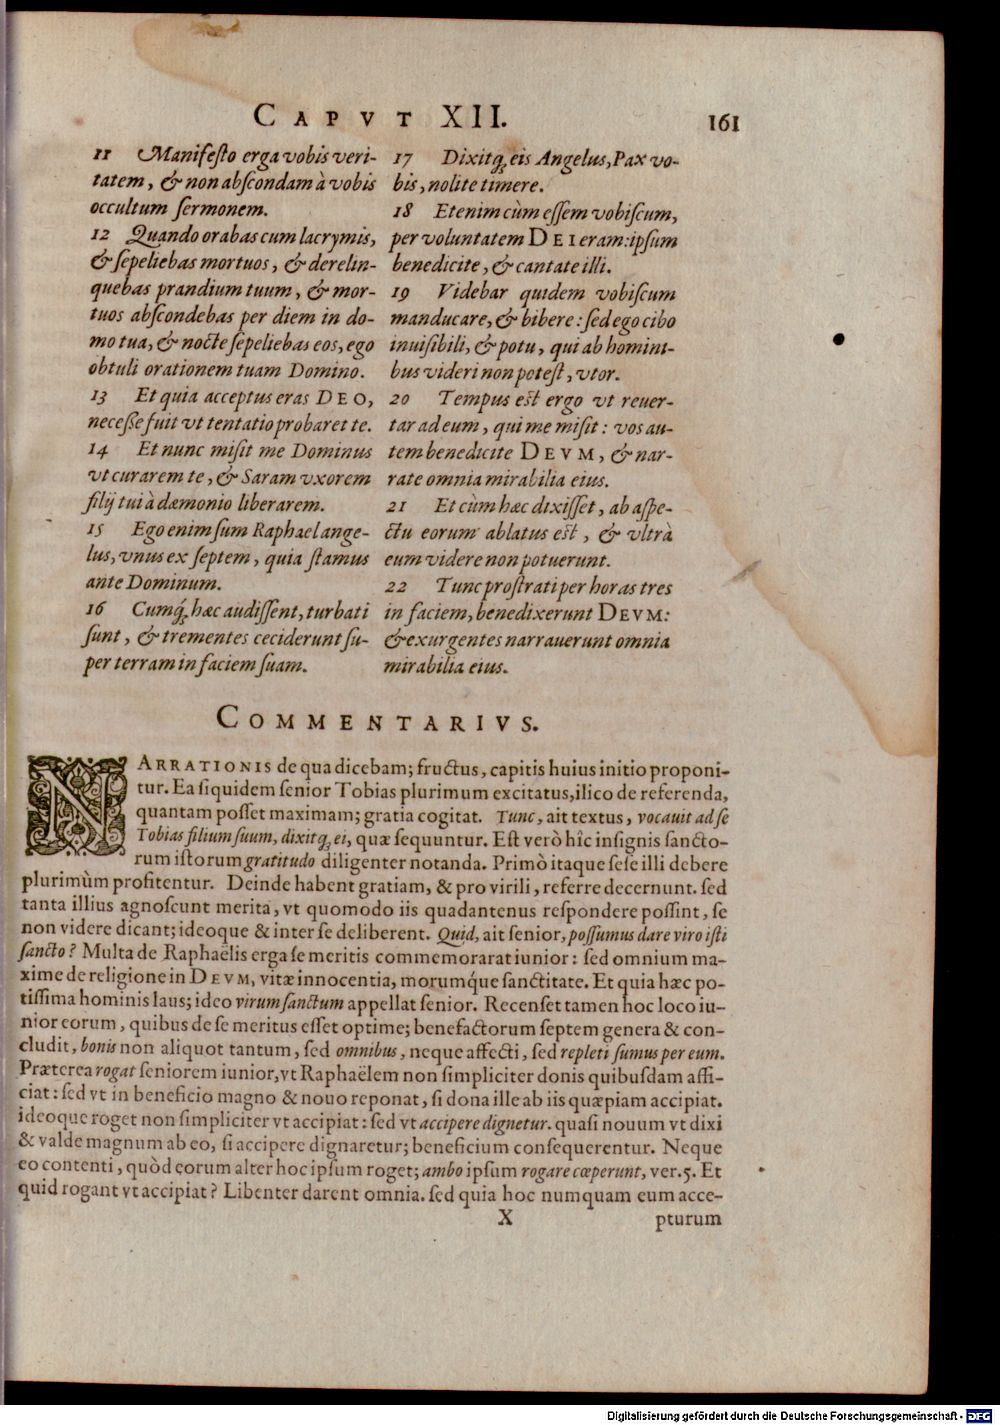 CAPVT XII.
161
11 Manifesto erga vobis veri-
tatem, & non abscondam à vobis
occultum sermonem.
12 Quando orabas cum lacrymis,
& sepeliebas mortuos, & derelin-
quebas prandium tuum, & mor-
tuos abscondebas per diem in do-
mo tua, & nocte sepeliebas eos, ego
obtuli orationem tuam Domino.
13 Et quia acceptus eras DEO,
necesse fuit vt tentatio probaret te.
14 Et nunc misit me Dominus
vt curarem te, & Saram vxorem
filij tui à dæmonio liberarem.
15 Ego enim sum Raphael ange-
lus, vnus ex septem, quia stamus
ante Dominum.
16 Cumq́; hæc audissent, turbati
sunt, & trementes ceciderunt su-
per terram in faciem suam.
17 Dixitq́; eis Angelus, Pax vo-
bis, nolite timere.
18 Etenim cùm essem vobiscum,
per voluntatem DEI eram: ipsum
benedicite, & cantate illi.
19 Videbar quidem vobiscum
manducare, & bibere: sed ego cibo
inuisibili, & potu, qui ab homini-
bus videri non potest, vtor.
20 Tempus est ergo vt reuer-
tar ad eum, qui me misit: vos au-
tem benedicite DEVM, & nar-
rate omnia mirabilia eius.
21 Et cùm hæc dixisset, ab aspe-
ctu eorum ablatus est, & vltrà
eum videre non potuerunt.
22 Tunc prostrati per horas tres
in faciem, benedixerunt DEVM:
& exurgentes narrauerunt omnia
mirabilia eius.
COMMENTARIVS.
NARRATIONIS de qua dicebam; fructus, capitis huius initio proponi-
tur. Ea siquidem senior Tobias plurimum excitatus, ilico de referenda,
quantam posset maximam; gratia cogitat. Tunc, ait textus, vocauit ad se
Tobias filium suum, dixitq́; ei, quæ sequuntur. Est verò hîc insignis sancto-
rum istorum gratitudo diligenter notanda. Primò itaque sese illi debere
plurimùm profitentur. Deinde habent gratiam, & pro virili, referre decernunt. sed
tanta illius agnoscunt merita, vt quomodo iis quadantenus respondere possint, se
non videre dicant; ideoque & inter se deliberent. Quid, ait senior, possumus dare viro isti
sancto? Multa de Raphaëlis erga se meritis commemorarat iunior: sed omnium ma-
xime de religione in DEVM, vitæ innocentia, morumq́ue sanctitate. Et quia hæc po-
tissima hominis laus; ideo virum sanctum appellat senior. Recenset tamen hoc loco iu-
nior eorum, quibus de se meritus esset optime; benefactorum septem genera & con-
cludit, bonis non aliquot tantum, sed omnibus, neque affecti, sed repleti sumus per eum.
Præterea rogat seniorem iunior, vt Raphaëlem non simpliciter donis quibusdam affi-
ciat: sed vt in beneficio magno & nouo reponat, si dona ille ab iis quæpiam accipiat.
ideoque roget non simpliciter vt accipiat: sed vt accipere dignetur. quasi nouum vt dixi
& valde magnum ab eo, si accipere dignaretur; beneficium consequerentur. Neque
eo contenti, quòd eorum alter hoc ipsum roget; ambo ipsum rogare cœperunt, ver. 5. Et
quid rogant vt accipiat? Libenter darent omnia. sed quia hoc numquam eum acce-
X
pturum
Digitalisierung gefördert durch die Deutsche Forschungsgemeinschaft - DFG